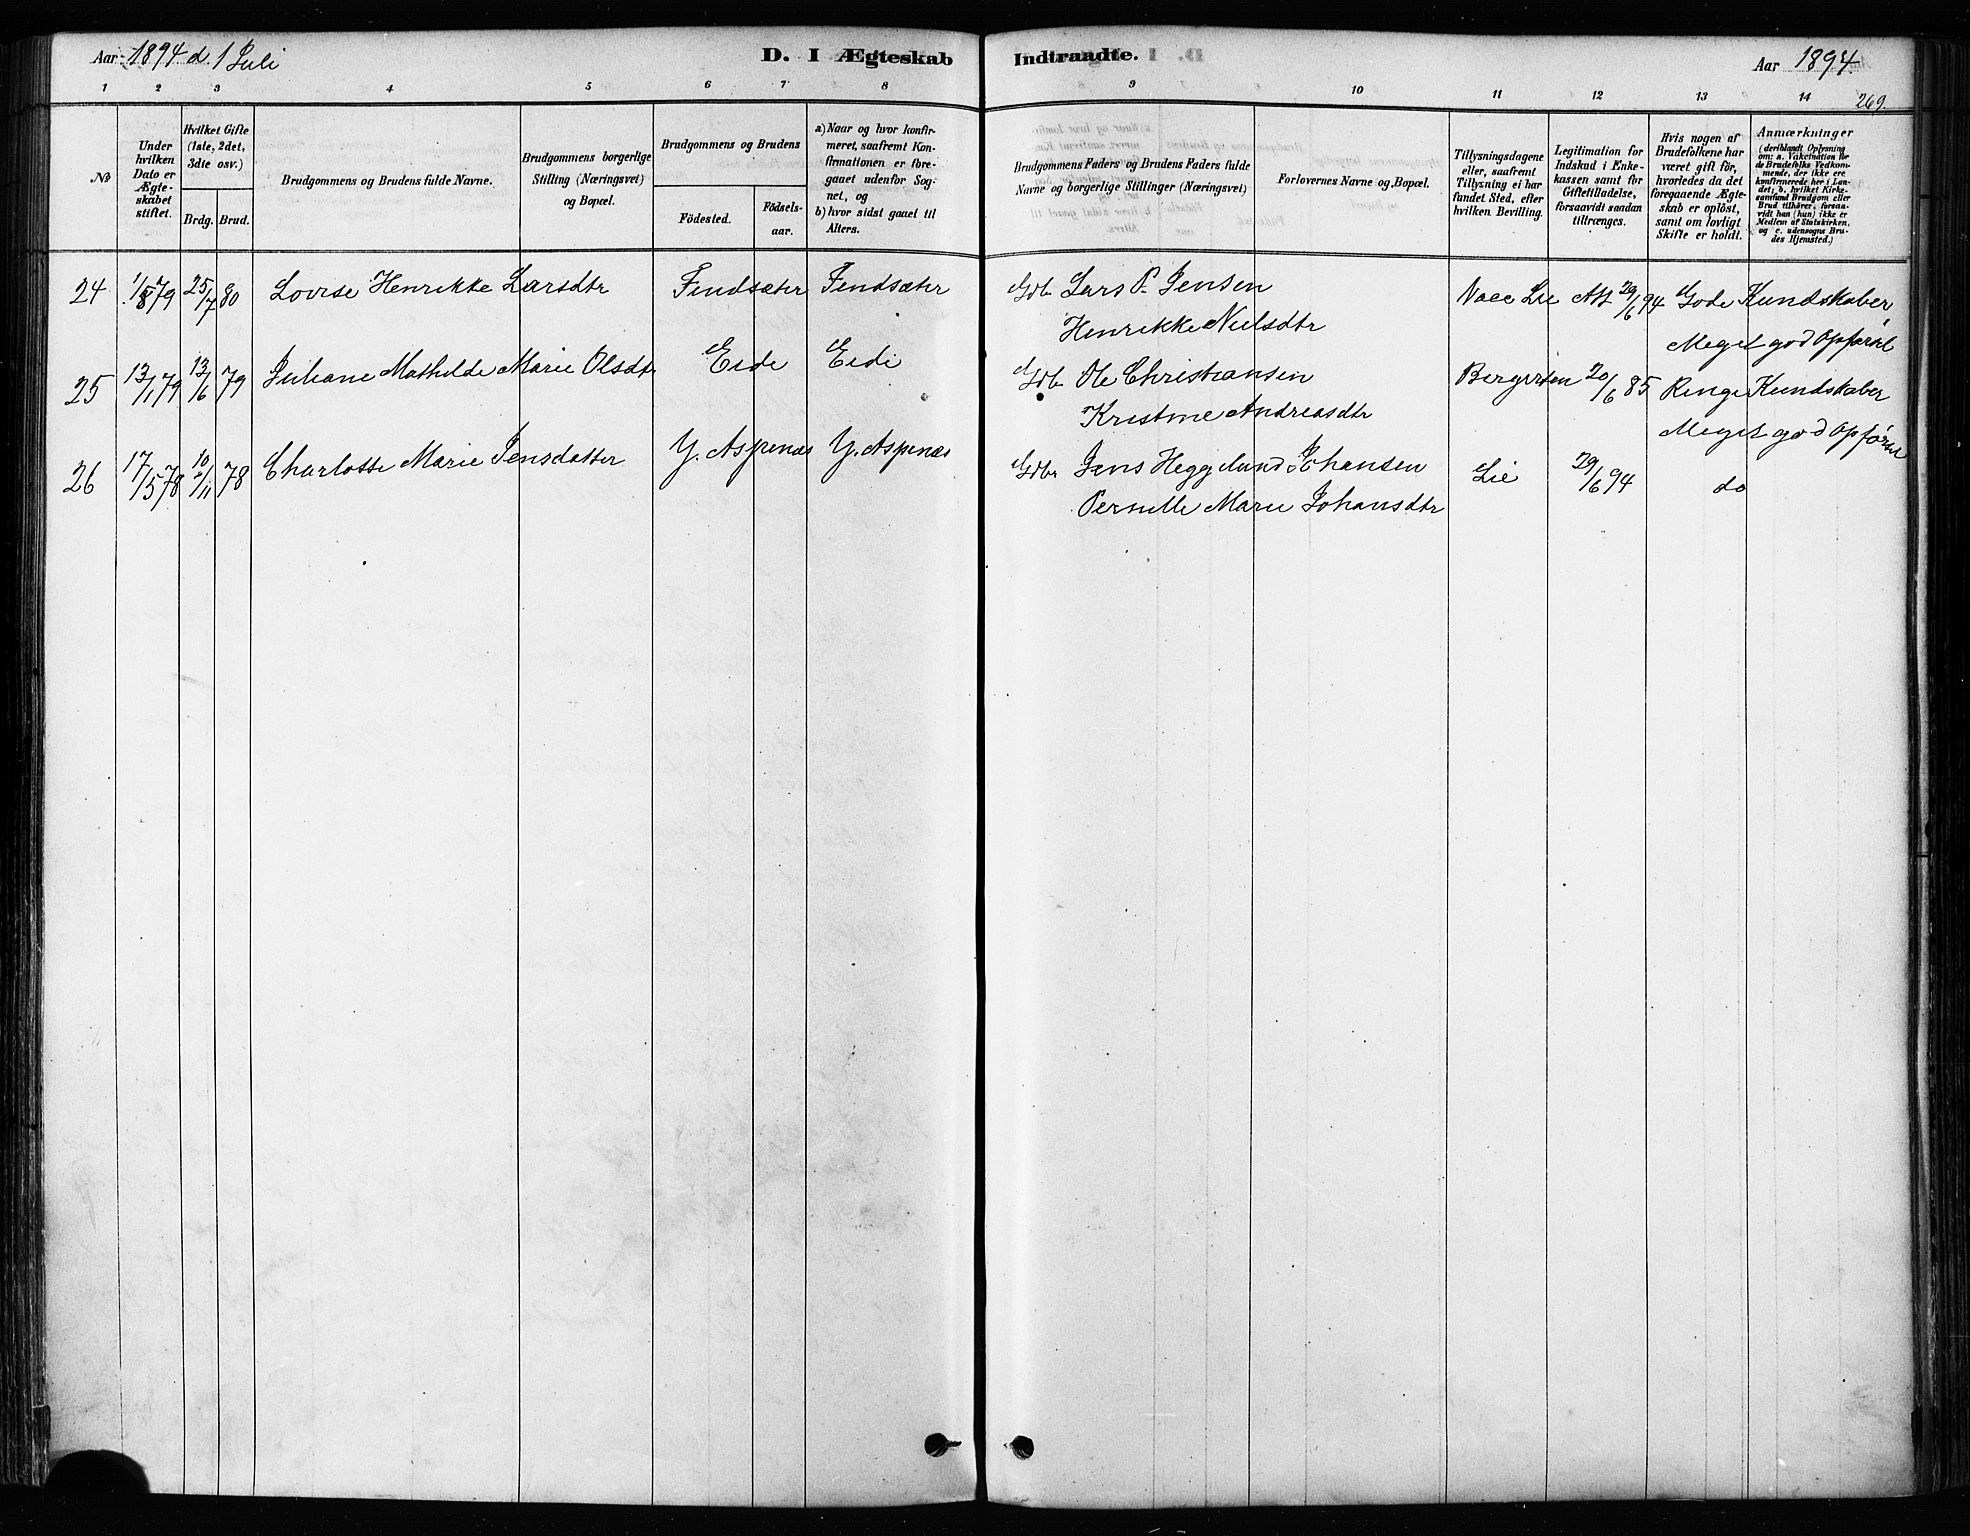 Aar 1894 d. 1 Juli
D. I Ægteskab Indtraadte.
Aar 1894.
269.
1 2 3 4 5 6 7 8 9 10 11 12 13 14
No
Under hvilken Dato er Ægteskabet stiftet.
Hvilket Gifte (1ste, 2det, 3die osv.)
Brdg. Brud.
Brudgommens og Brudens fulde Navne.
Brudgommens borgerlige Stilling (Næringsvei) og Bopæl.
Brudgommens og Brudens
Födested. Födselsaar.
a) Naar og hvor konfirmeret, saafremt Konfirmationen er foregaaet udenfor Sognet, og
b) hvor sidst gaaet til Alters.
Brudgommens Faders og Brudens Faders fulde Navne og borgerlige Stillinger (Næringsvei)
Forlovernes Navne og Bopæl.
Tillysningsdagene eller, saafremt Tillysning ei har fundet Sted, efter hvilken Bevilling.
Legitimation for Indskud i Enkekassen samt for Giftetilladelse, forsaavidt saadan tiltrænges.
Hvis nogen af Brudefolkene har været gift för, hvorledes da det foregaaende Ægteskab er oplöst, samt om lovligt Skifte er holdt.
Anmærkninger
(deriblandt Oplysning om: a. Vakcination for de Brudefolks Vedkommende, der ikke ere konfirmerede her i Landet; b. hvilket Kirkesamfund Brudgom eller Brud tilhörer, forsaavidt han (hun) ikke er Medlem af Statskirken, og c. udensogns Brudes Hjemsted.)
24 1/8 79 25/7 80 Lovise Henrikke Larsdtr Findsæter Findsæter Gdb Lars P. Jensen Lie Att 29/6 94 Gode Kundskaber
Henrikke Nielsdtr Meget god Opførsel
25 13/1 79 13/6 79 Juliane Mathilde Marie Olsdtr Eide Eide Gdb Ole Christiansen 20/6 85 Ringe Kundskaber
Kristine Andreasdtr Meget god Opførsel
26 17/5 78 10/11 78 Charlotte Marie Jensdatter Y. Aspenæs Y. Aspenæs Gdbr Jens Hegglund Johansen Lie 29/6 94 do
Pernille Marie Johansdtr